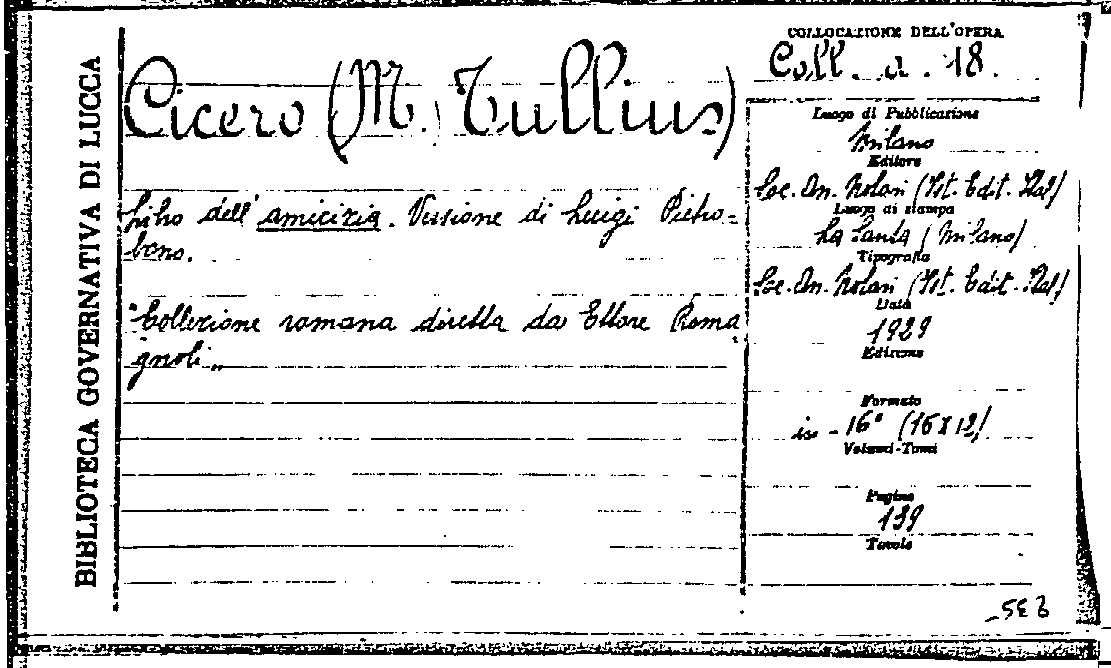 BIBLIOTECA GOVERNATIVA DI LUCCA
Cicero (M. Tullius)
Libro dell'amicizia. Versione di Luigi Pietro=
bono.
"Collezione romana diretta da Ettore Roma
gnoli„
COLLOCAZIONE DELL'OPERA
Coll. a. 18.
Luogo di Pubblicazione
Milano
Editore
Soc. An. Notari (Ist. Edit. Ital)
Luogo di stampa
La Santa (Milano)
Tipografia
Soc. An. Notari (Ist. Edit. Ital)
Data
1929
Edizione
Formato
in - 16° (16x12)
Volumi-Tomi
Pagine
139
Tavole